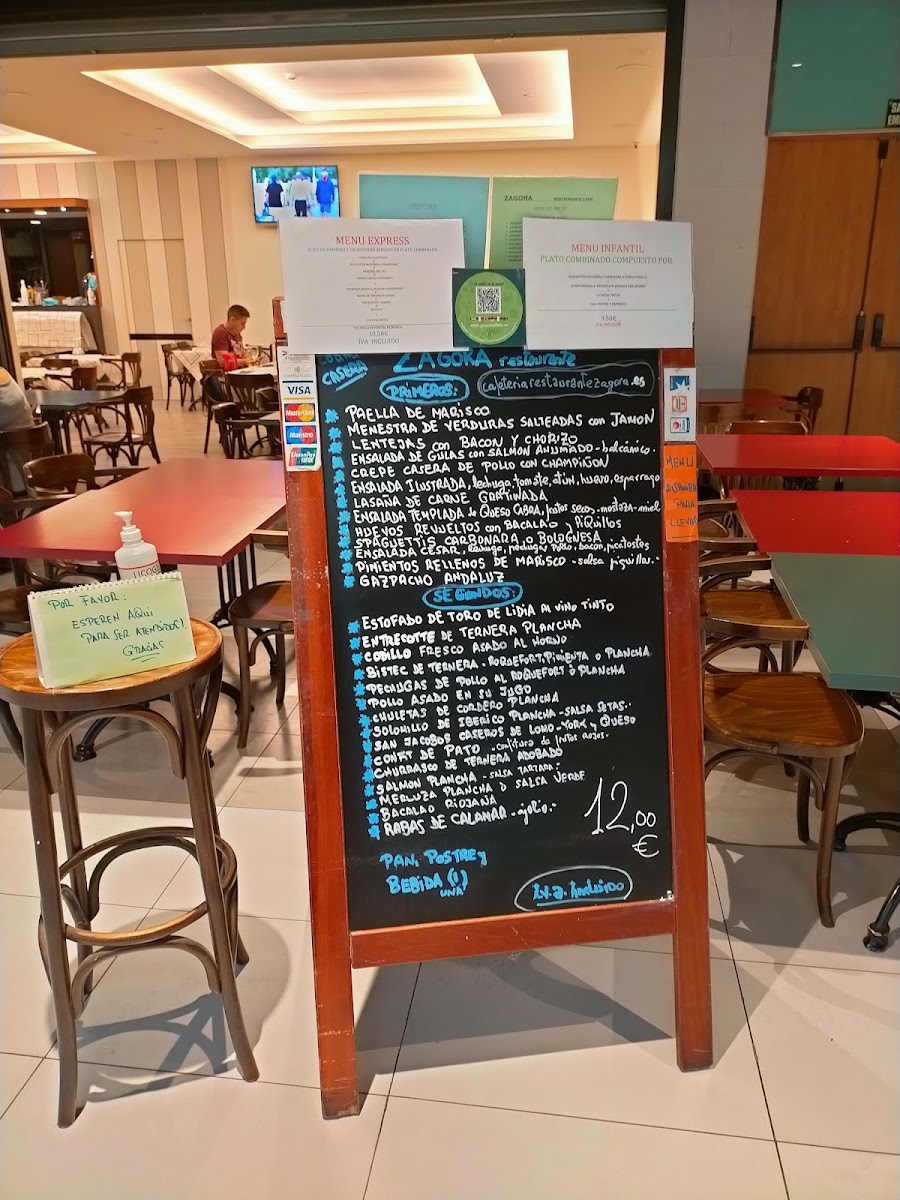 ZAGORA RESTAURANTE CAFÉ
MENU EXPRESS
10,50€
IVA INCLUIDO
MENU INFANTIL
PLATO COMBINADO COMPUESTO POR:
9.50€
IVA INCLUIDO
CASERA
ZAGORA restaurante
PRIMEROS:
cafeteriarestaurantezagora.es
PAELLA DE MARISCO
MENESTRA DE VERDURAS SALTEADAS con JAMON
LENTEJAS con BACON Y CHORIZO
ENSALADA DE GULAS con SALMON AHUMADO - balsámico.
CREPE CASERA DE POLLO con CHAMPIÑON
ENSALADA ILUSTRADA, lechuga, tomate, atún, huevo, esparrago
LASAÑA DE CARNE GRATINADA
ENSALADA TEMPLADA de QUESO CABRA, frutos secos - mostaza - miel
HUEVOS REVUELTOS con BACALAO y PIQUILLOS
SPAGUETTIS CARBONARA o BOLOGNESA
ENSALADA CESAR, lechuga, pechuga pollo, bacon, picatostes
PIMIENTOS RELLENOS DE MARISCO - salsa piquillos.
GAZPACHO ANDALUZ
SEGUNDOS:
ESTOFADO DE TORO DE LIDIA AL VINO TINTO
ENTRECOTTE DE TERNERA PLANCHA
CODILLO FRESCO ASADO AL HORNO
BISTEC DE TERNERA - ROQUEFORT, PIMIENTA o PLANCHA
PECHUGAS DE POLLO AL ROQUEFORT o PLANCHA
POLLO ASADO EN SU JUGO
CHULETAS DE CORDERO PLANCHA
SOLOMILLO DE IBERICO PLANCHA - SALSA SETAS..
SAN JACOBOS CASEROS DE LOMO - YORK y QUESO
CONFIT DE PATO - confitura de frutos rojos.
CHURRASCO DE TERNERA ADOBADO
SALMON PLANCHA - SALSA TARTARA -
MERLUZA PLANCHA o SALSA VERDE
BACALAO RIOJANA
RABAS DE CALAMAR - ajolio..
12,00
€
PAN, POSTRE y
BEBIDA (1)
UNA
I.V.A. Incluido
VISA
MasterCard
Maestro
UnionPay
MENU
PARA
LLEVAR
POR FAVOR:
ESPEREN AQUI
PARA SER ATENDIDOS!
GRACIAS